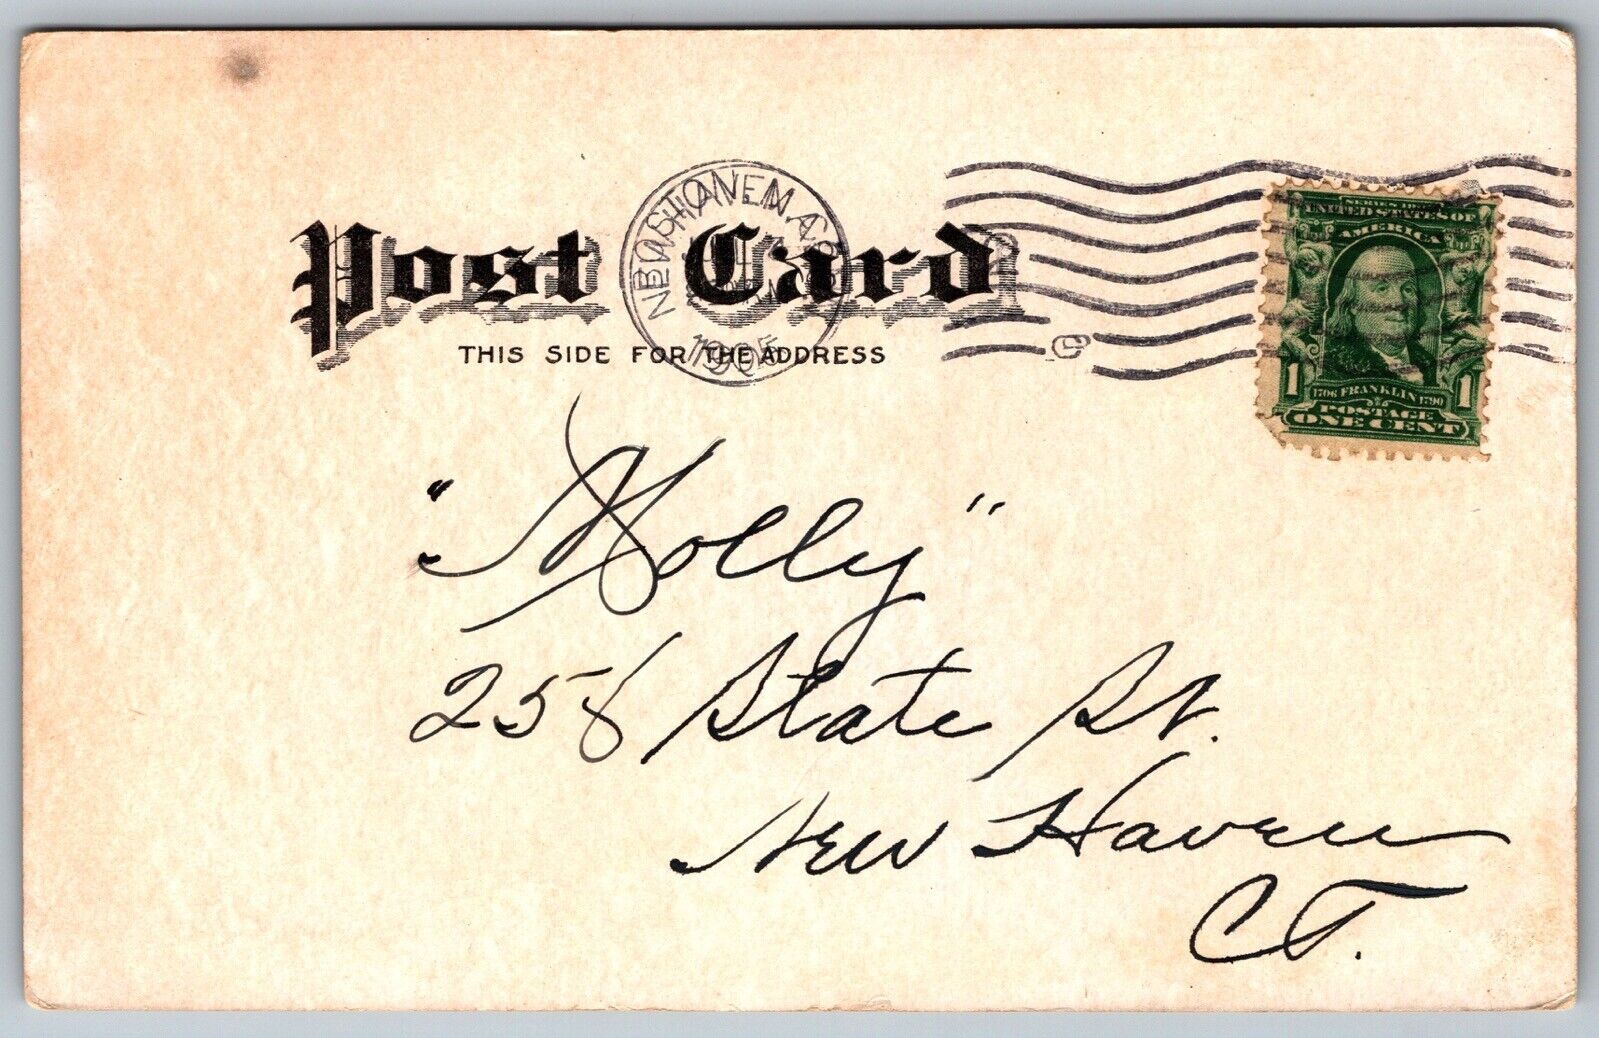 Post Card
THIS SIDE FOR THE ADDRESS
1905
SERIES 1902
UNITED STATES OF
AMERICA
1 1
1706 FRANKLIN 1790
POSTAGE
ONE CENT
"Molly"
258 State St.
New Haven
CT.